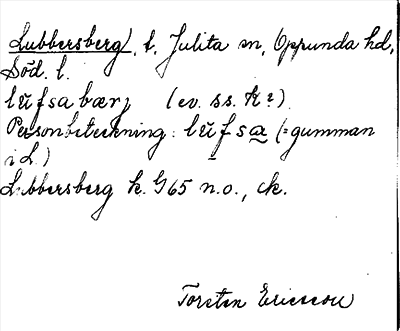 Lubbersberg, l. Julita sn, Oppunda hd,
Söd. l.
lŭfsabærj (ev. ss. k?)
Personbeteckning: lŭfsa (= gumman
i L.)
Lubbersberg k. G65 n.o., ck.
Torsten Ericsson